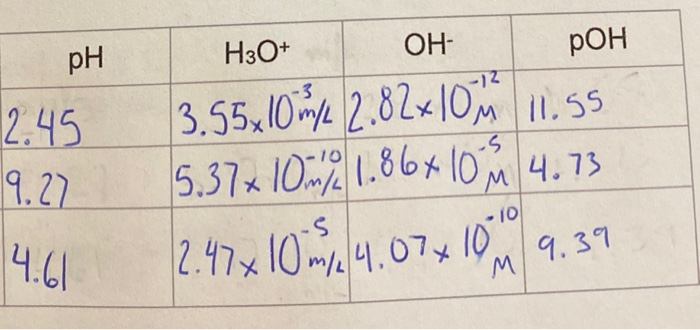 pH H₃O⁺ OH⁻ pOH
2.45 3.55×10⁻³ m/L 2.82×10⁻¹² M 11.55
9.27 5.37×10⁻¹⁰ m/L 1.86×10⁻⁵ M 4.73
4.61 2.47×10⁻⁵ m/L 4.07×10⁻¹⁰ M 9.39